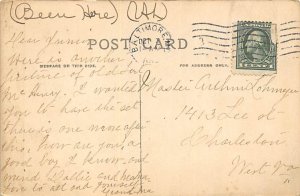 (Been Here) (Al)
POST CARD
BALTIMORE
MESSAGE ON THIS SIDE.
FOR ADDRESS ONLY.
Dear Junior
Here is another
picture of old Fort
Mc Henry. I wanted
you to have the set
There is one more after
this, how are you, a
good boy I know, and
mind Dallie and
you to all and yourself
Grandma
Master Arthur
1413 Lee st
Charleston
West Va
CENT